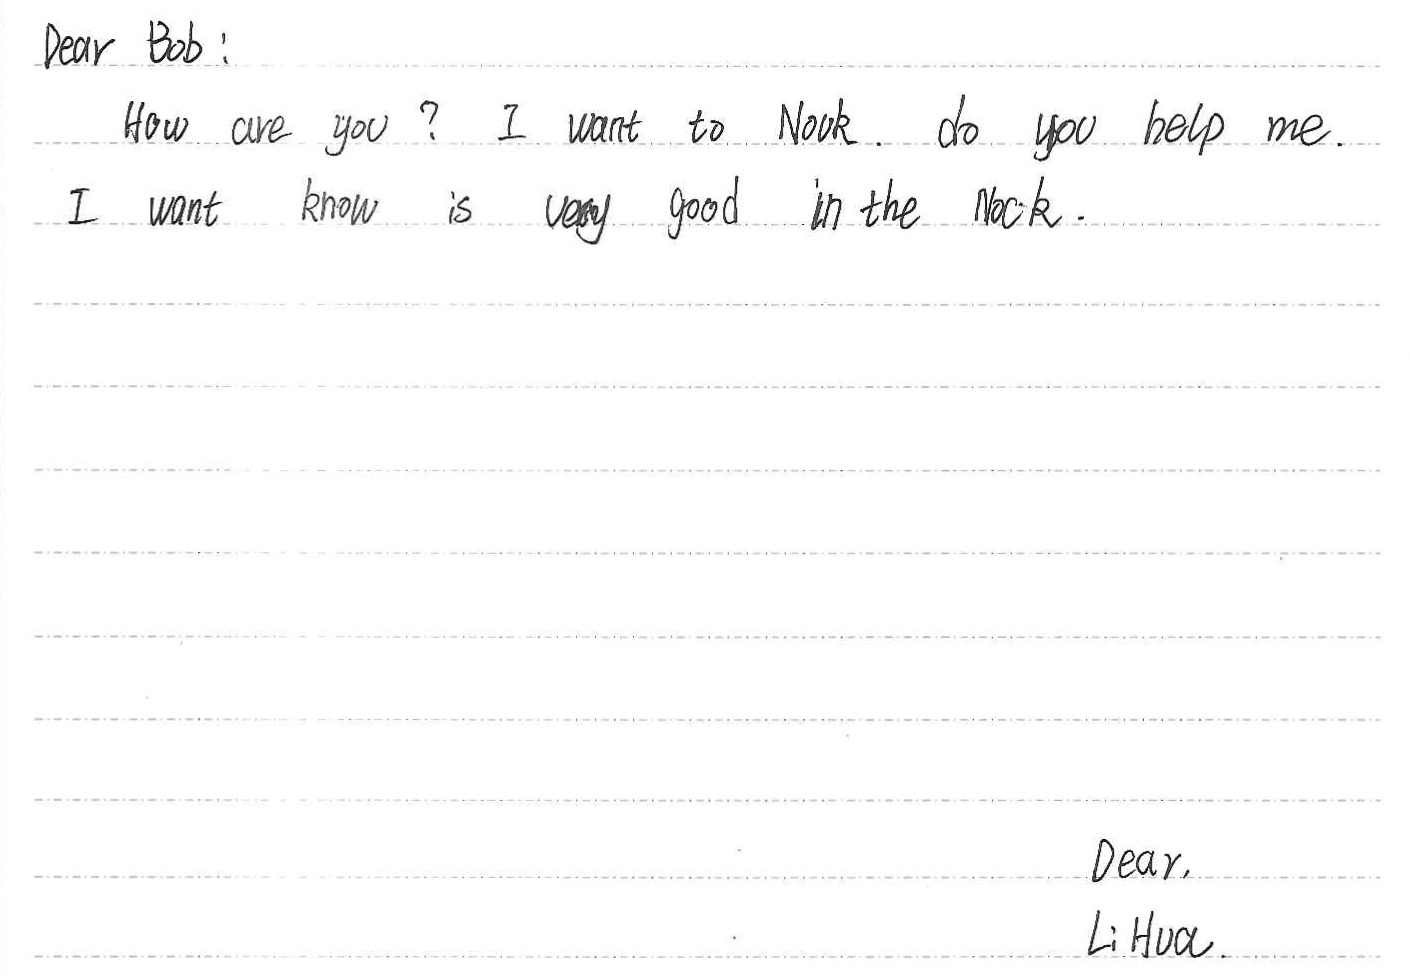 Dear Bob:
How are you? I want to Nook. do you help me.
I want know is very good in the Nock.
Dear,
Li Hua.